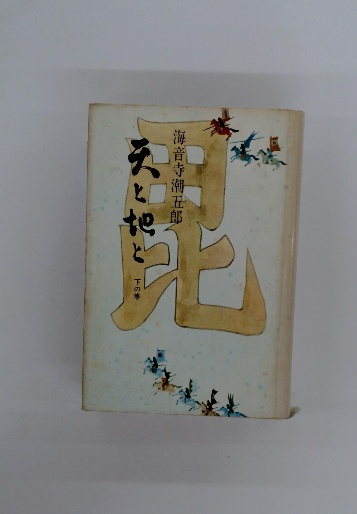 海音寺潮五郎
天と地と
下の巻
毘